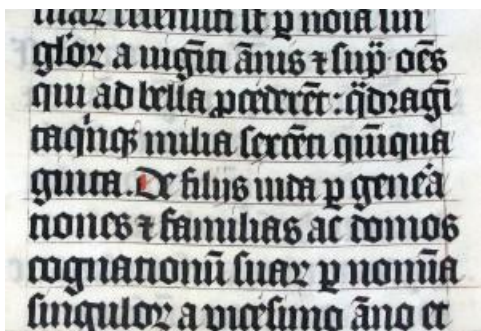 suaꝝ recensiti st̄ ꝑ noīa sin
gloꝝ a uigīti ānis ⁊ sup̄ oēs
qui ad bella ꝓcederēt : qͣdragī
taqͥnqꝫ milia sexcēti qūiqua
ginta. De filijs iuda ꝑ geneͣ
tiones ⁊ familias ac domos
cognationū suaꝝ ꝑ nomīa
singuloꝝ a vicesimo āno et